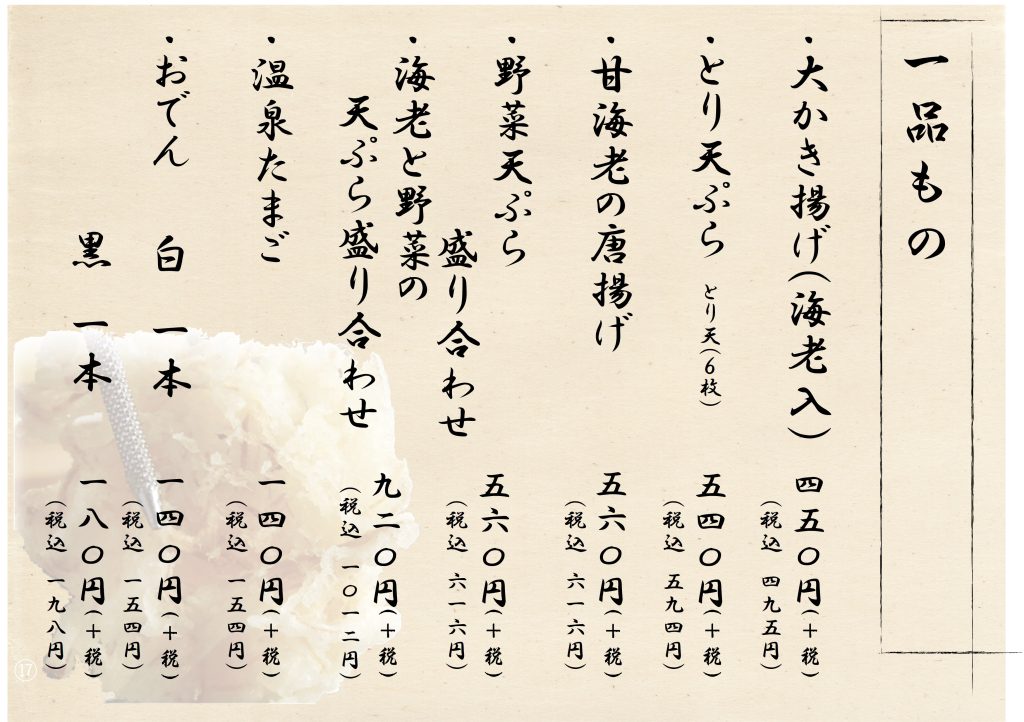 一品もの
・大かき揚げ(海老入)
四五〇円(＋税)
(税込 四九五円)
・とり天ぷら とり天(6枚)
五四〇円(＋税)
(税込 五九四円)
・甘海老の唐揚げ
五六〇円(＋税)
(税込 六一六円)
・野菜天ぷら
盛り合わせ
五六〇円(＋税)
(税込 六一六円)
・海老と野菜の
天ぷら盛り合わせ
九二〇円(＋税)
(税込 一〇一二円)
・温泉たまご
一四〇円(＋税)
(税込 一五四円)
・おでん 白 一本
一四〇円(＋税)
(税込 一五四円)
黒 一本
一八〇円(＋税)
(税込 一九八円)
⑰